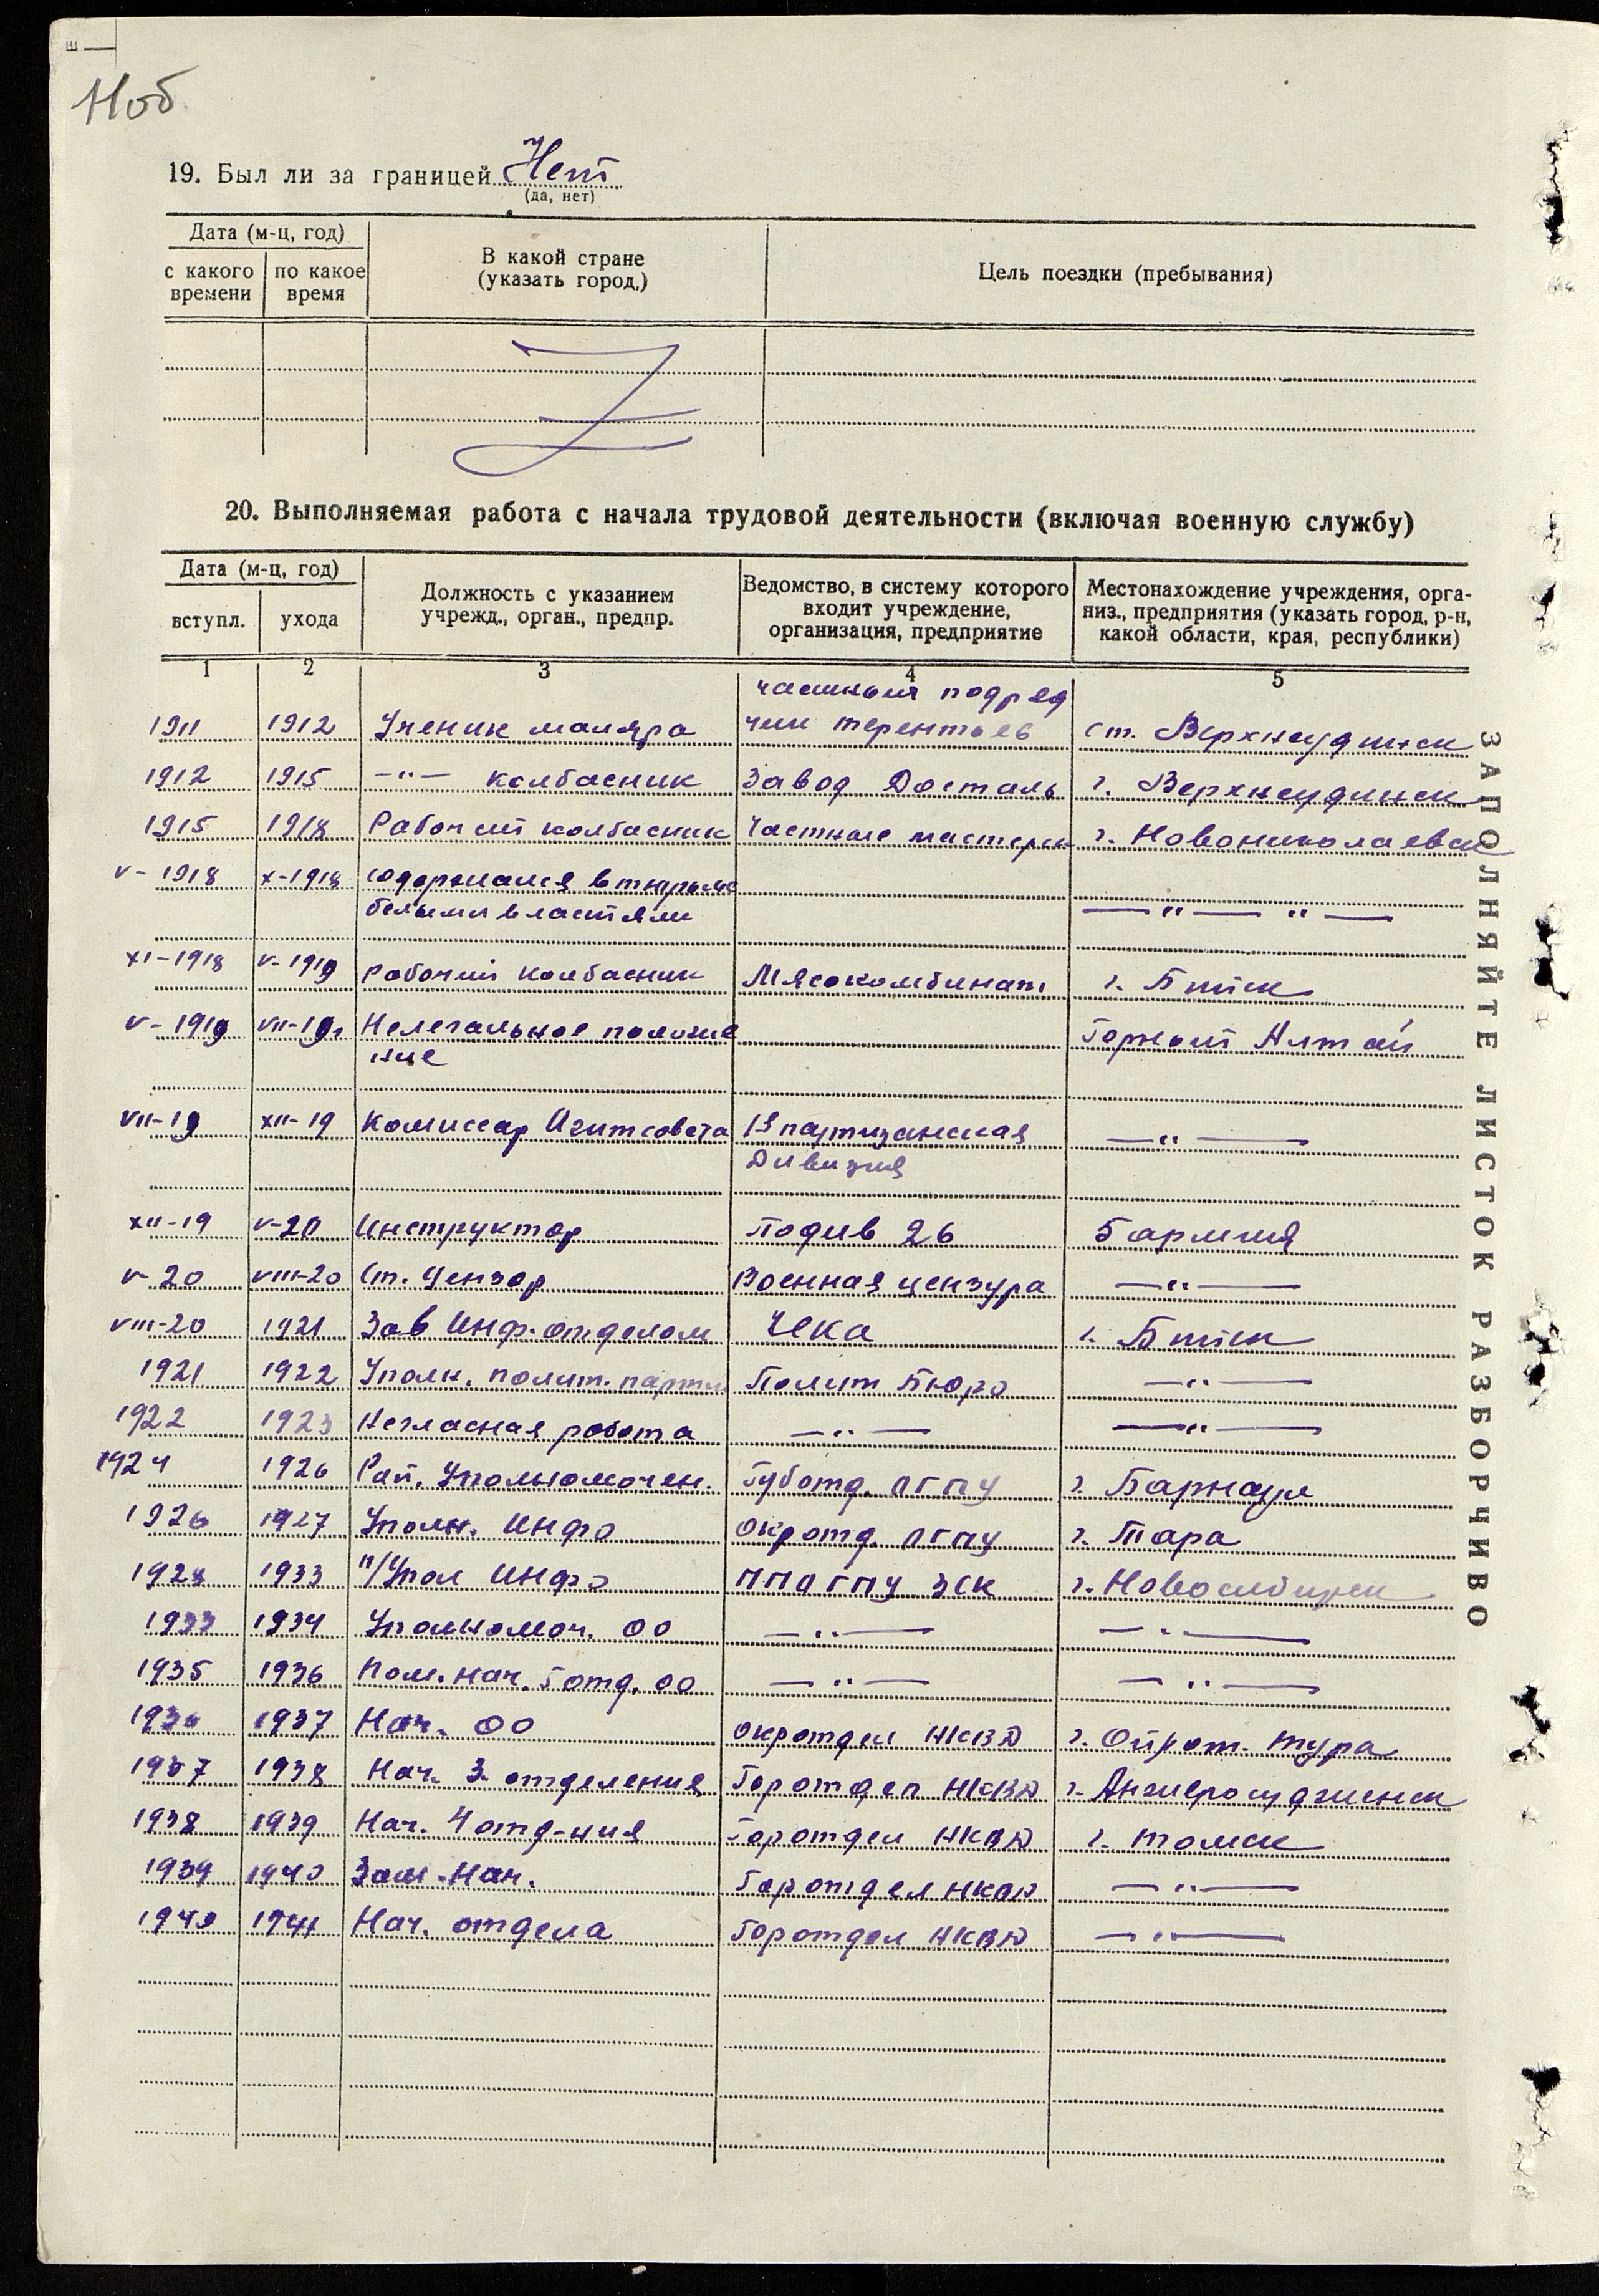 Ноб
19. Был ли за границей Нет
(да, нет)
Дата (м-ц, год)
с какого времени
по какое время
В какой стране (указать город.)
Цель поездки (пребывания)
20. Выполняемая работа с начала трудовой деятельности (включая военную службу)
Дата (м-ц, год)
вступл. ухода
Должность с указанием учрежд., орган., предпр.
Ведомство, в систему которого входит учреждение, организация, предприятие
Местонахождение учреждения, организ., предприятия (указать город, р-н, какой области, края, республики)
1 2 3 4 5
частный подряд
1911 1912 Ученик маляра чик Терентьев ст. Верхнеудинск
1912 1915 —"— колбасник Завод Досталь г. Верхнеудинск
1915 1918 Рабочий колбасник Частные мастерск г. Новониколаевск
V-1918 X-1918 содержался в тюрьме
белыми властями —"— "—
XI-1918 V-1919 рабочий колбасник Мясокомбинат г. Бийск
V-1919 VII-19г Нелегальное положе Горный Алтай
ние
VII-19 XII-19 Комиссар Агитсовета 1я партизанская —"—
Дивизия
XII-19 V-20 Инструктор Подив 26 5 армия
V-20 VIII-20 Ст. Цензор Военная цензура —"—
VIII-20 1921 Зав Инф. отделом ЧЕКа г. Бийск
1921 1922 Уполн. полит. парти Полит Бюро —"—
1922 1923 Негласная работа —"— —"—
1924 1926 Рай. Уполномочен. Губотд. ОГПУ г. Барнаул
1926 1927 Уполн. Инфо Окротд. ОГПУ г. Тара
1928 1933 п/Упол Инфо ПП ОГПУ ЗСК г. Новосибирск
1933 1934 Уполномоч. ОО —"— —"—
1935 1936 Пом. нач. 5 отд. ОО —"— —"—
1936 1937 Нач. ОО Окротдел НКВД г. Ойрот. Тура
1937 1938 Нач. 3 отделения Горотдел НКВД г. Анжеросудженск
1938 1939 Нач. 4 отд-ния Горотдел НКВД г. Томск
1939 1940 Зам. Нач. Горотдел НКВД —"—
1940 1941 Нач. отдела Горотдел НКВД —"—
ЗАПОЛНЯЙТЕ ЛИСТОК РАЗБОРЧИВО